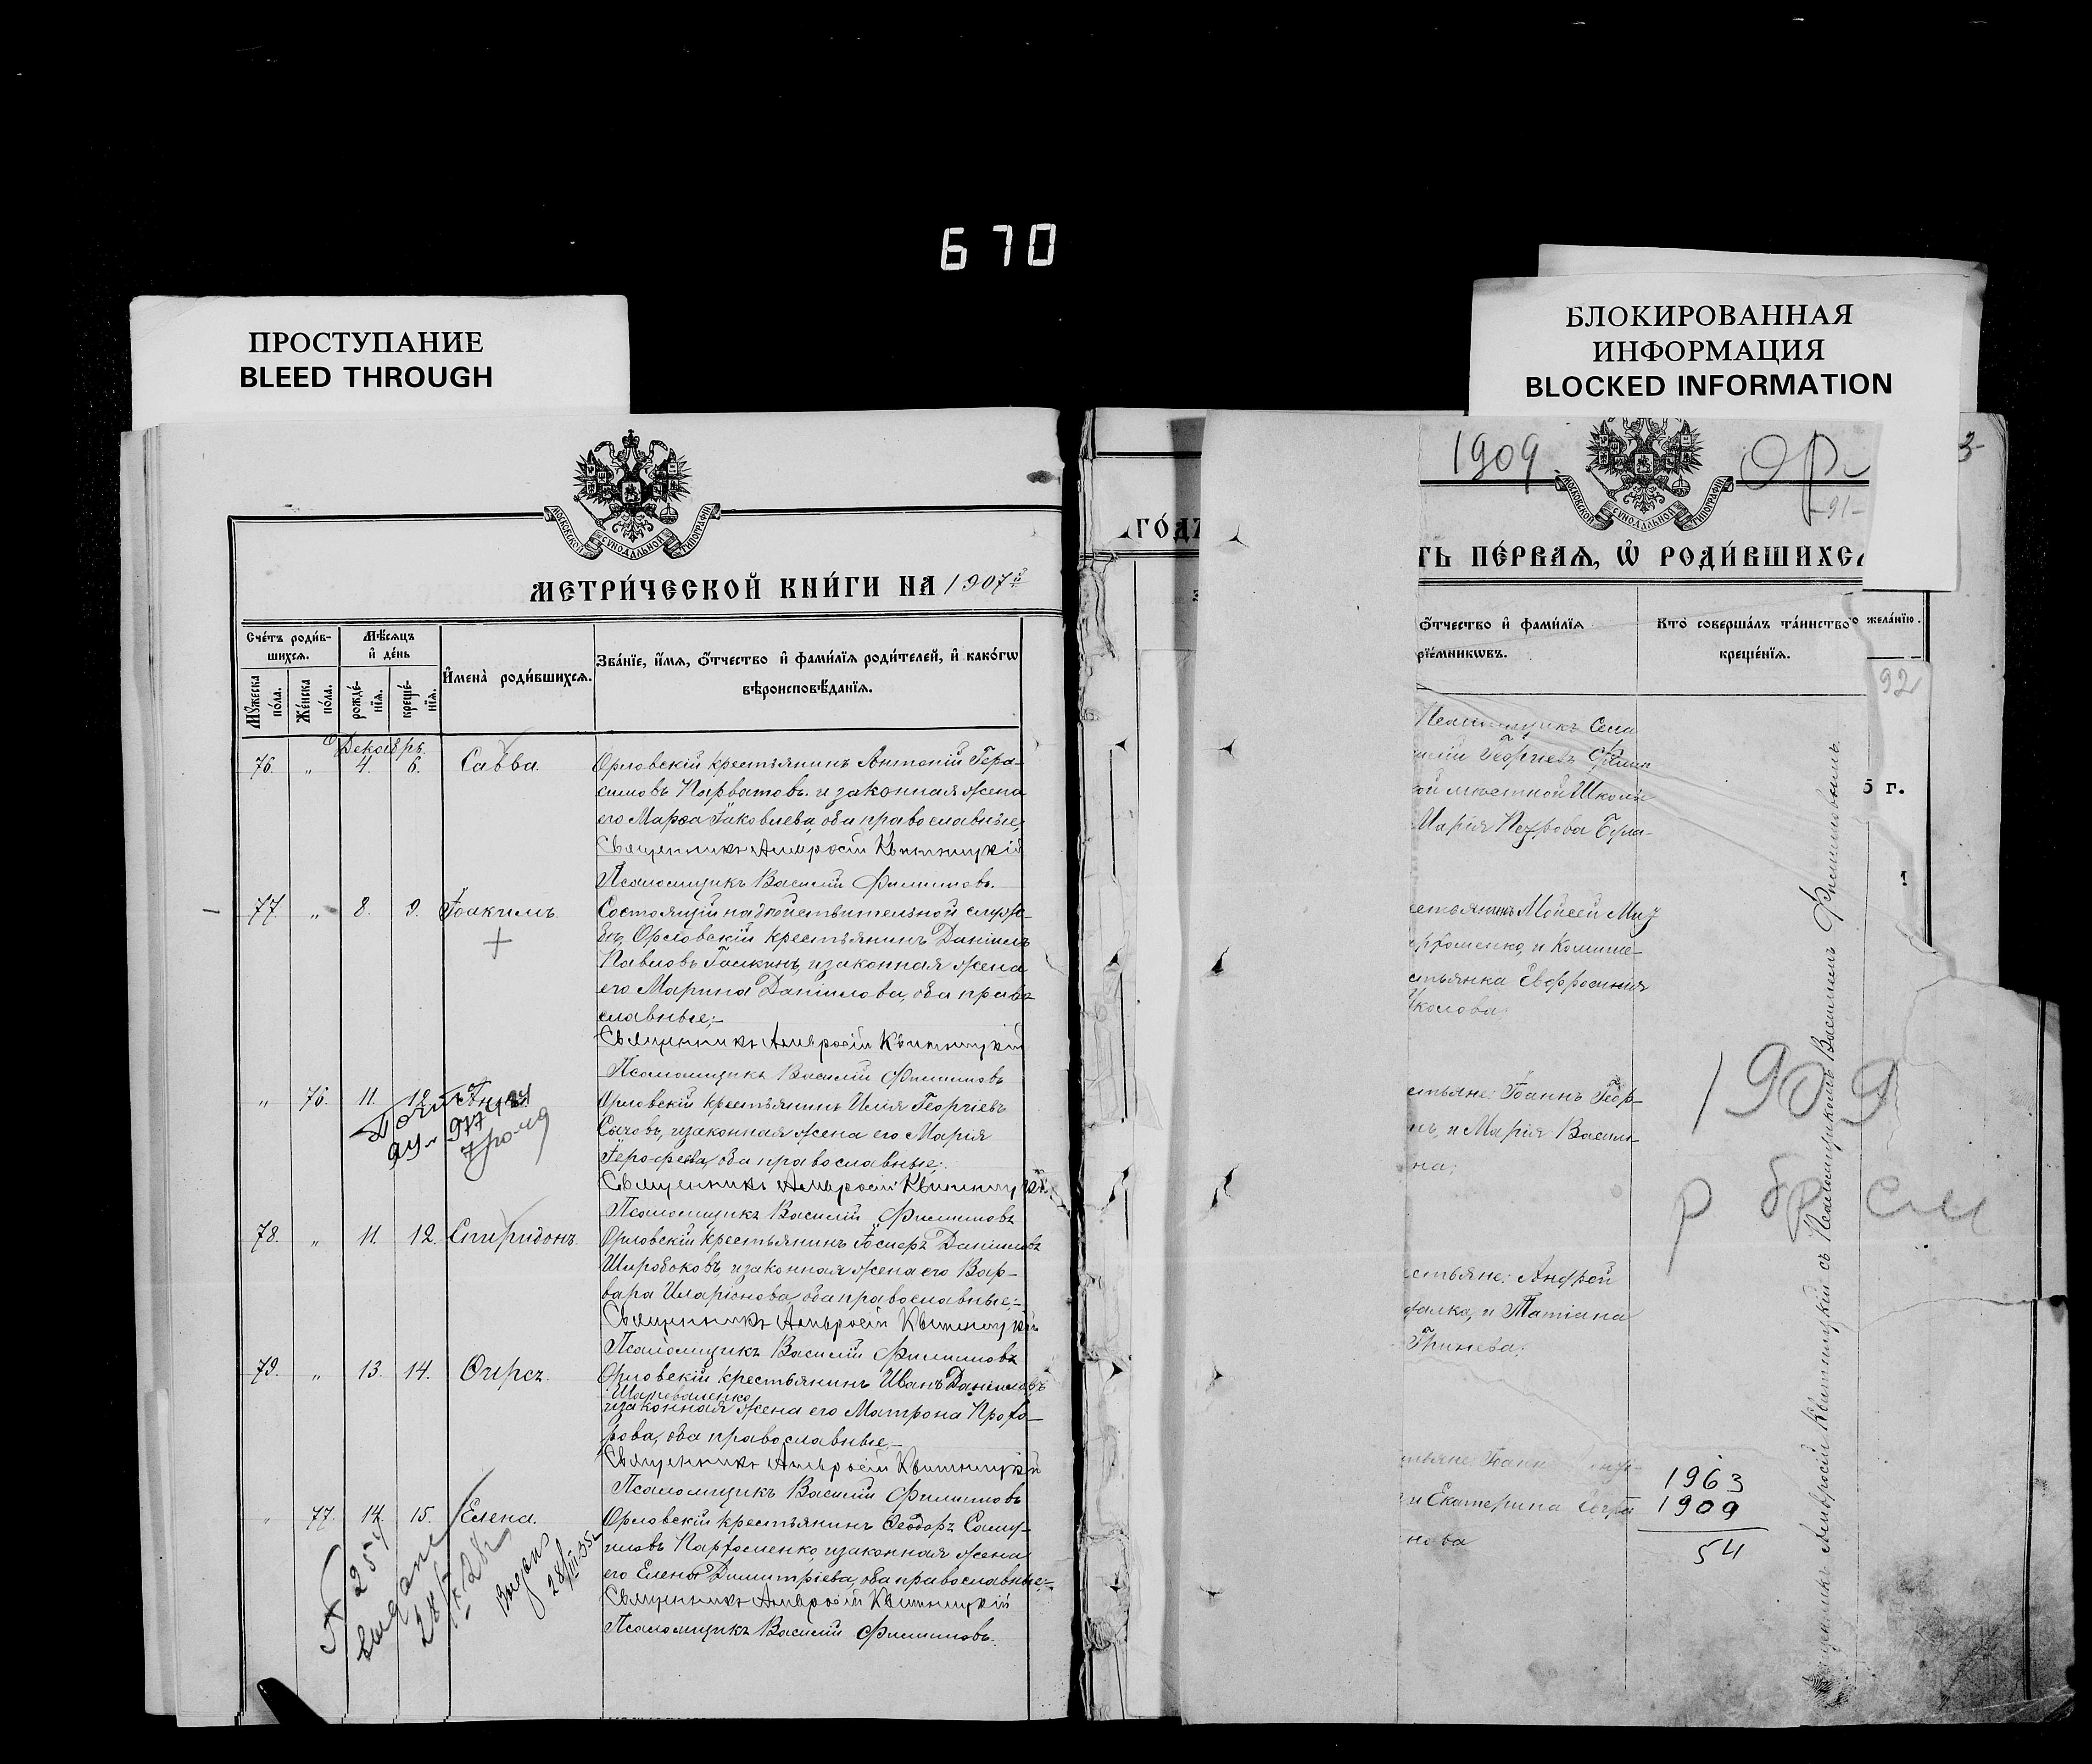 670
ПРОСТУПАНИЕ
BLEED THROUGH
БЛОКИРОВАННАЯ
ИНФОРМАЦИЯ
BLOCKED INFORMATION
МОСКОВСКОЙ СѴНОДАЛЬНОЙ ТИПОГРАФІИ
МЕТРИ́ЧЕСКОЙ КНИ́ГИ НА 1907й
Сче́тъ роди́в-
шихсѧ.
Мꙋ́жеска по́ла.
Же́нска по́ла.
Мѣ́сѧцъ
и҆ де́нь
рожде́-
нїѧ.
креще́-
нїѧ.
И҆мена̀ роди́вшихсѧ.
Зва́нїе, и҆́мѧ, ѻ҆́тчество и҆ фами́лїѧ роди́телей, и҆ како́гѡ
вѣроисповѣ́данїѧ.
Декабрь.
76. " 4. 6. Савва. Орловскій крестьянинъ Антоній Гера-
симовъ Парватовъ. и законная жена
его Марѳа Іаковлева, оба православные;
Священникъ Амвросій Квитницкій
Псаломщикъ Василій Филиповъ.
77. " 8. 9. Іоакимъ. Состоящій на дѣйствительной служ-
бѣ, Орловскій крестьянинъ Даніилъ
Павловъ Галкинъ, и законная жена
его Марина Даніилова, оба право-
славные;-
Священникъ Амвросій Квитницкій
Псаломщикъ Василій Филиповъ
" 76. 11. 12. Анна Орловскій крестьянинъ Илія Георгіевъ
Сычовъ, и законная жена его Марія
Іероѳеева, оба православные;-
Священникъ Амвросій Квитницкій
Псаломщикъ Василій Филиповъ
78. " 11. 12. Спиридонъ. Орловскій крестьянинъ Іосифъ Данииловъ
Широбоковъ, и законная жена его Вар-
вара Иларіонова, оба православные;-
Священникъ Амвросій Квитницкій
Псаломщикъ Василій Филиповъ
79. " 13. 14. Ѳирсъ. Орловскій крестьянинъ Иванъ Данииловъ
Шаповаленко
и законная жена его Матрона Прохо-
рова, оба православные,-
Священникъ Амвросій Квитницкій
Псаломщикъ Василій Филиповъ
" 77. 14. 15. Елена. Орловскій крестьянинъ Ѳеодоръ Саму-
иловъ Пархоменко, и законная жена
его Елена Димитріева, оба православные;-
Священникъ Амвросій Квитницкій
Псаломщикъ Василій Филиповъ.
выдана
28/III-35
ГО́ДЪ
1909
-91-
3-
ТЬ ПЕ́РВАѦ, Ѡ҆ РОДИ́ВШИХСѦ
МОСКОВСКОЙ СѴНОДАЛЬНОЙ ТИПОГРАФІИ
ѻ҆́тчество и҆ фами́лїѧ
рїе́мникѡвъ.
Кто̀ соверша́лъ та́инство
креще́нїѧ.
о жела́нїю.
92
5 г.
Марія Петрова
Мойсей
и Комише-
стьянка Евфросинія
стьяне: Іоаннъ Геор-
и Марія Василь-
на;
стьяне: Андрей
и Татіана
Гринева;
и Екатерина
нова
1909
1963
1909
54
Священникъ Амвросій Квитницкій съ Псаломщикомъ Василіемъ Филиповымъ.